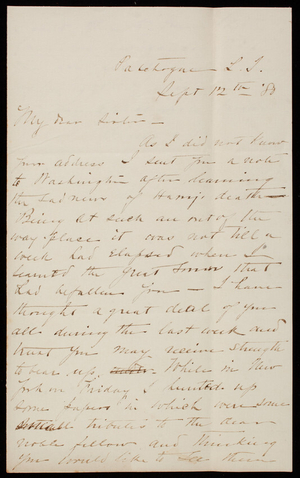 Patchogue L I.
Sept 12th '83
My dear Sister—
As I did not know
your address I sent you a note
to Washington after learning
the sad news of Harry's death—
Being at such an out of the
way place it was not till a
week had elapsed when I
learned the great sorrow that
had befallen you — I have
thought a great deal of you
all during the last week and
trust you may receive strength
to bear up. While in New
York on Friday I hunted up
some papers in which were some
tributes to the dear
noble fellow and thinking
you would like to see these